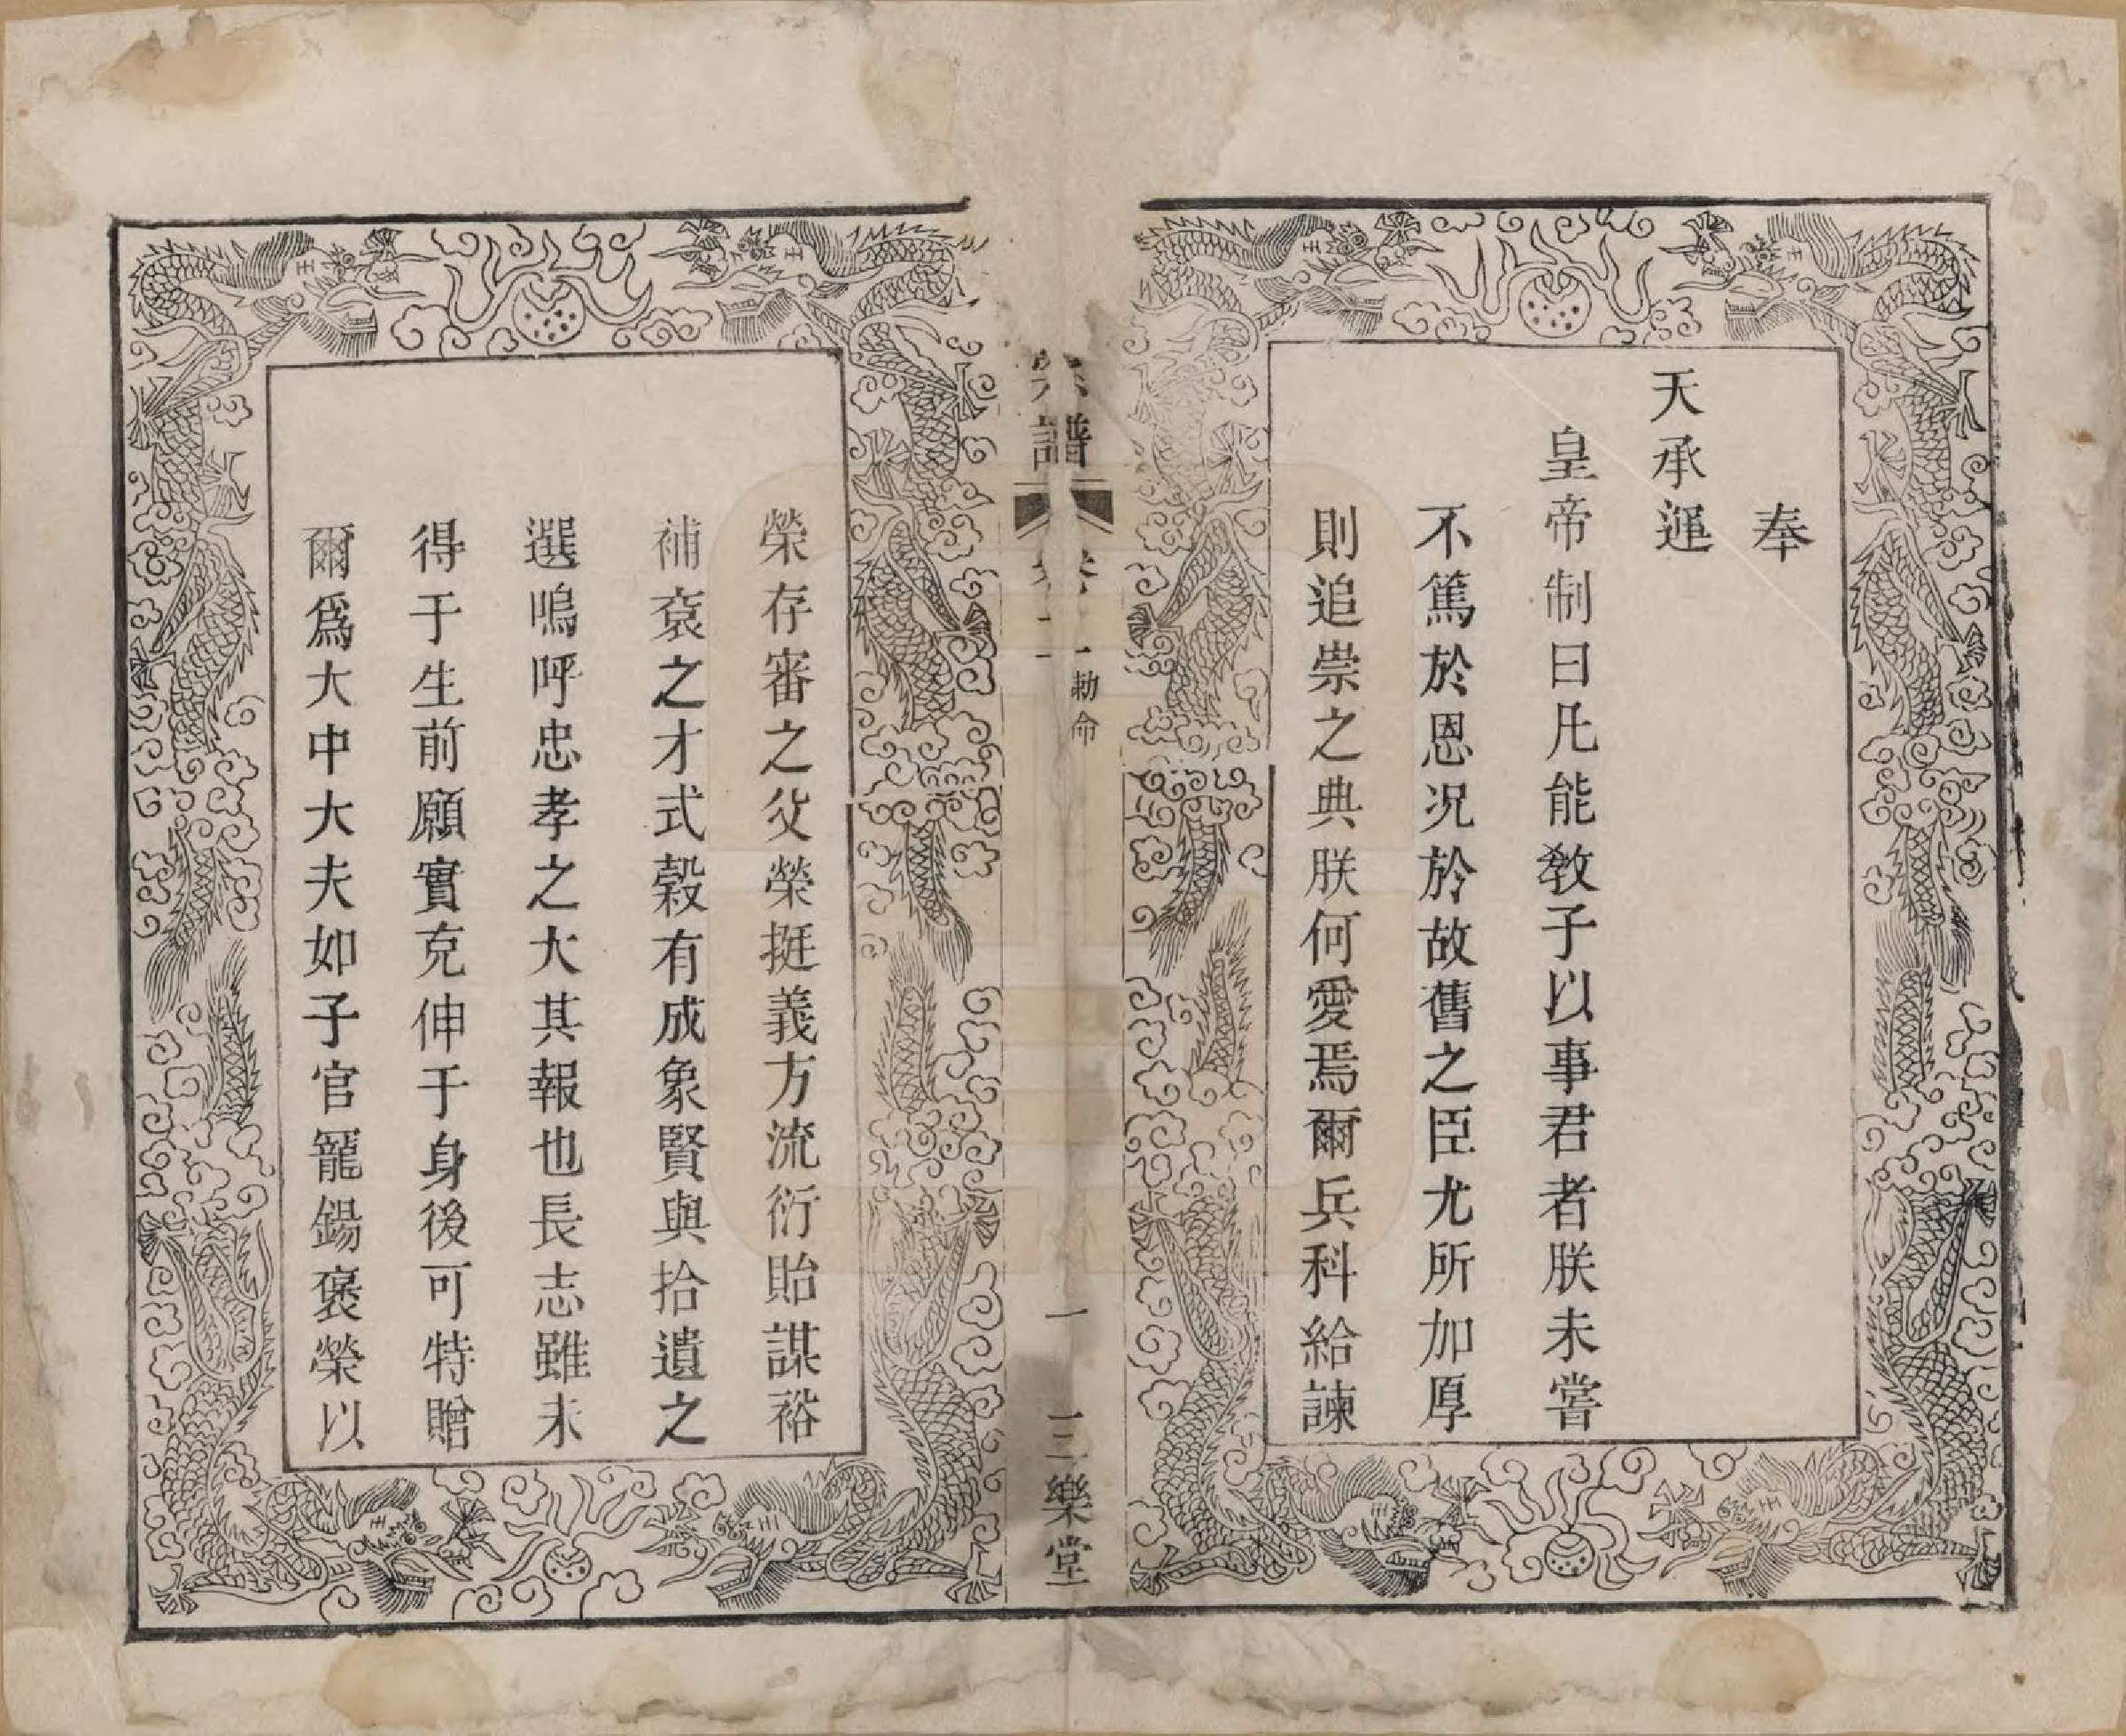 奉
天承運
皇帝制曰凡能教子以事君者朕未嘗
不篤於恩况於故舊之臣尤所加厚
則追崇之典朕何愛焉爾兵科給諫
宗譜
勅命
一
三樂堂
榮存審之父榮挺義方流衍貽謀裕
補袞之才式穀有成象賢與拾遺之
選嗚呼忠孝之大其報也長志雖未
得于生前願實克伸于身後可特贈
爾爲大中大夫如子官寵錫褒榮以